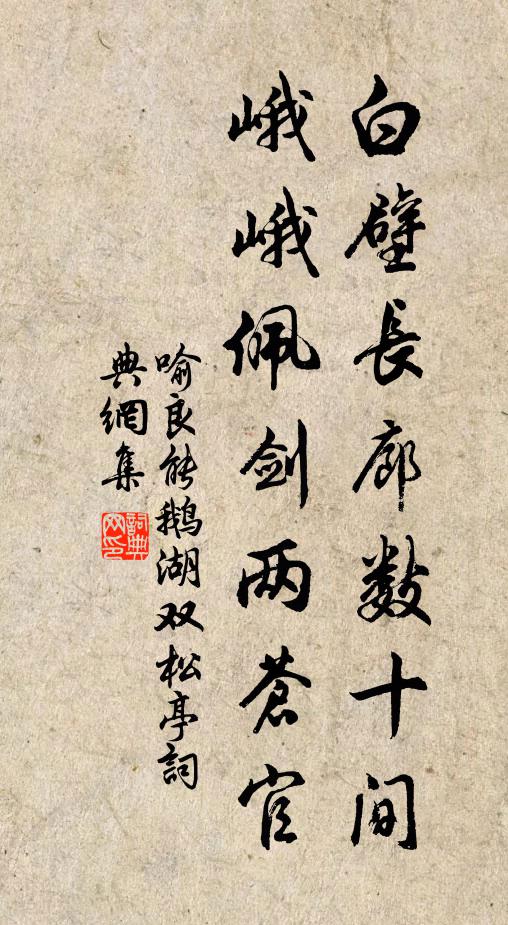 白壁長廊數十间
峨峨佩剑两蒼官
喻良能鵝湖双松亭詞
典網集
詞典网印